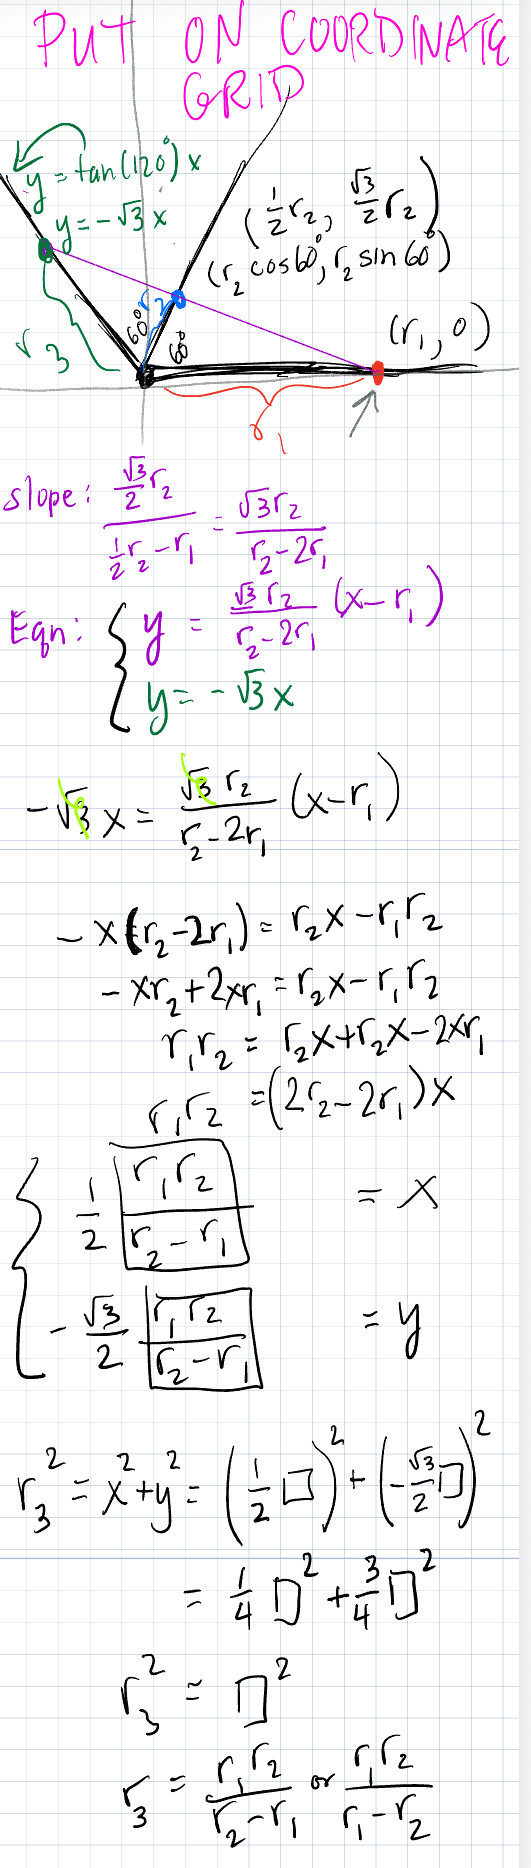 PUT ON COORDINATE
GRID
y = tan(120°)x
y = -√3 x
(1/2 r₂, √3/2 r₂)
(r₂ cos60°, r₂ sin 60°)
r₂
60°
60°
(r₁, 0)
r₃
r₁
slope: (√3/2 r₂)/(1/2 r₂ - r₁) = √3 r₂/(r₂ - 2r₁)
Eqn: { y = √3 r₂/(r₂ - 2r₁) (x - r₁)
y = -√3 x
-√3 x = √3 r₂/(r₂ - 2r₁) (x - r₁)
-x(r₂ - 2r₁) = r₂x - r₁r₂
-xr₂ + 2xr₁ = r₂x - r₁r₂
r₁r₂ = r₂x + r₂x - 2xr₁
r₁r₂ = (2r₂ - 2r₁)x
{ 1/2 r₁r₂/(r₂ - r₁) = x
-√3/2 r₁r₂/(r₂ - r₁) = y
r₃² = x² + y² = (1/2 □)² + (-√3/2 □)²
= 1/4 □² + 3/4 □²
r₃² = □²
r₃ = r₁r₂/(r₂ - r₁) or r₁r₂/(r₁ - r₂)